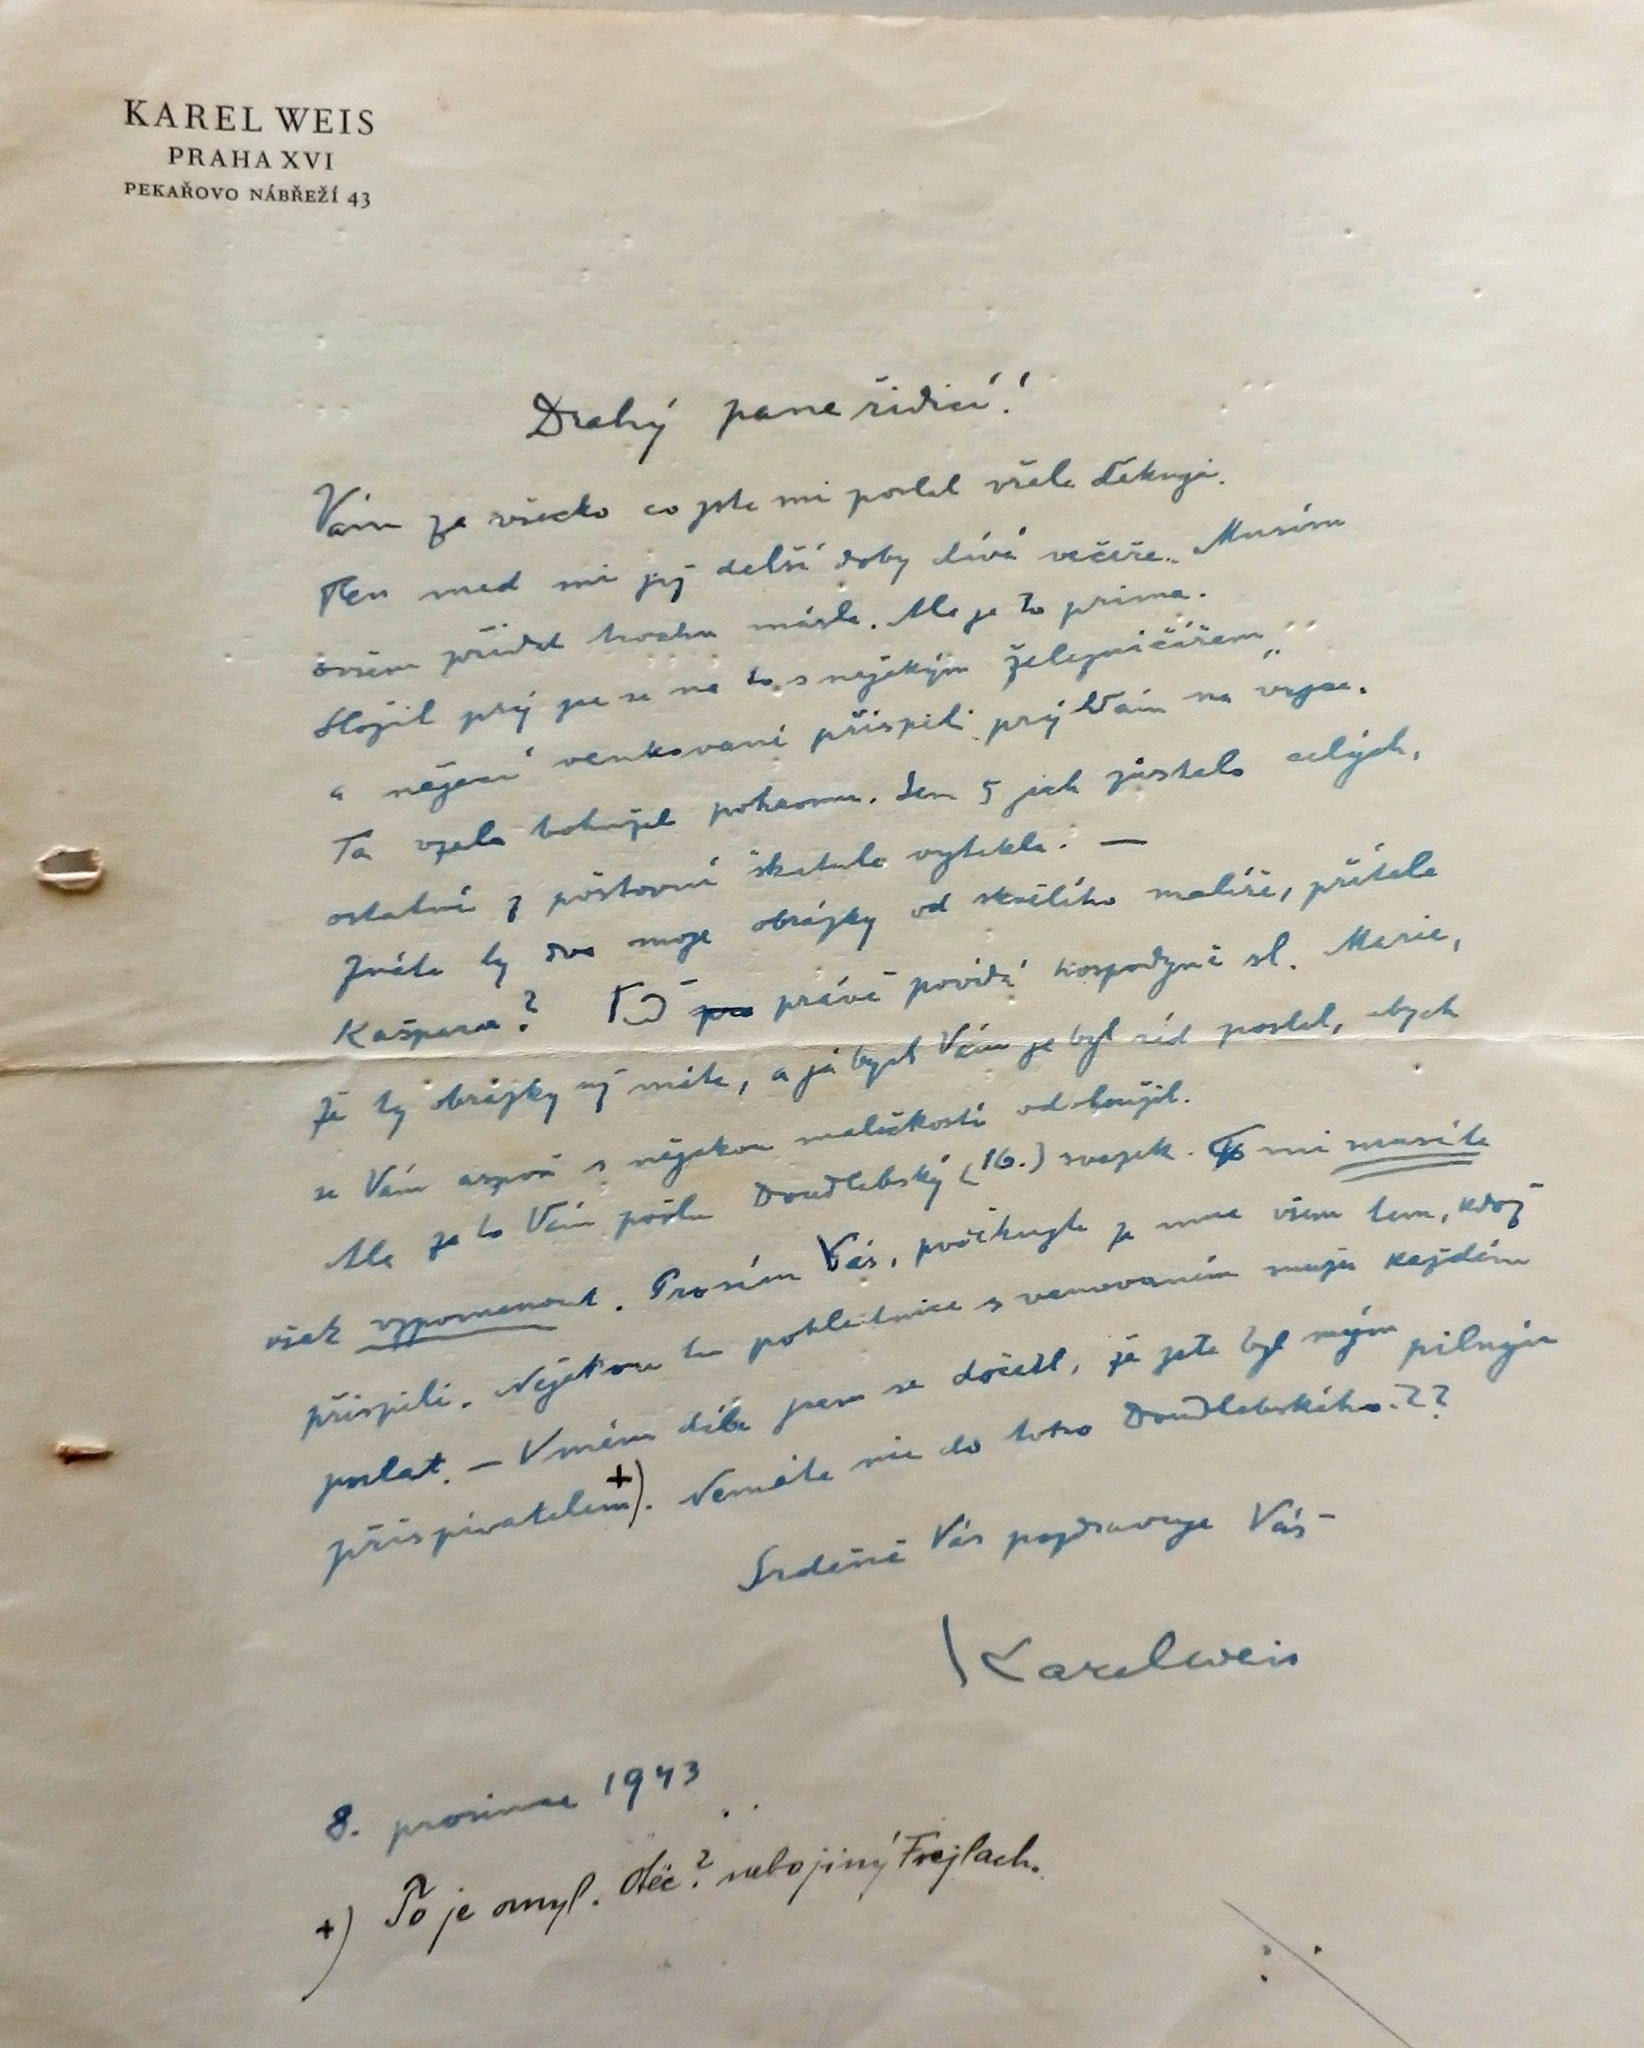 KAREL WEIS
PRAHA XVI
PEKAŘOVO NÁBŘEŽÍ 43
Drahý pane řídící!
Vám za všecko co jste mi poslal vřele děkuji.
Ten med mi již delší doby dává večeře. Musím
ovšem přidat trochu másla. Ale je to prima.
Složil prý jste se na to s nějakým železničářem„
a nějací venkované přispěli prý Vám na vejce.
Ta vzala bohužel pohromu. Jen 5 jich zůstalo celých,
ostatní z poštovní škatule vytekla. —
Znáte ty dva moje obrázky od skvělého malíře, přítele
Kašpara? Teď právě povídá hospodyně sl. Marie,
že ty obrázky už máte, a já bych Vám je byl rád poslal, abych
se Vám aspoň s nějakou maličkostí odsloužil.
Ale za to Vám pošlu Doudlebský (16.) svazek. To mi musíte
však vzpomenout. Prosím Vás, poděkujte za mne všem tem, kdož
přispěli. Nějakou tu pohlednici s venovaním mužu každému
poslat. — V mém díle jsem se dočetl, že jste byl mým pilným
přispivatelem +). Nemáte nic do toho Doudlebského??
Srdečně Vás pozdravuje Váš
Karel Weis
8. prosince 1943
+) To je omyl. nebo jiný Frejlach.